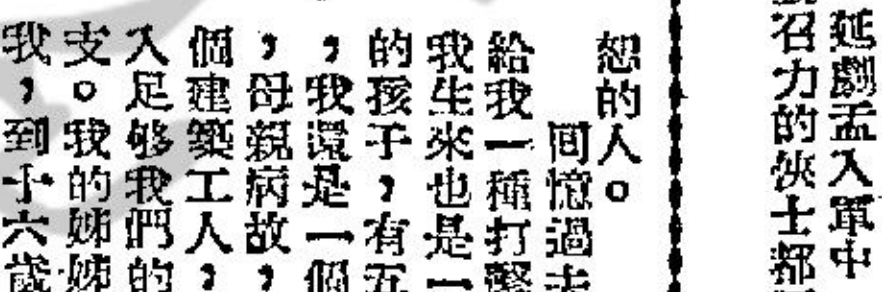 延劇孟入單中
召力的俠士都
恕的人。
回憶過去
給我一種打擊
我生來也是一
的孩子，有五
，我還是一個
，母親病故，
個建築工人，
入足够我們的
支。我的姊姊
我，到十六歲